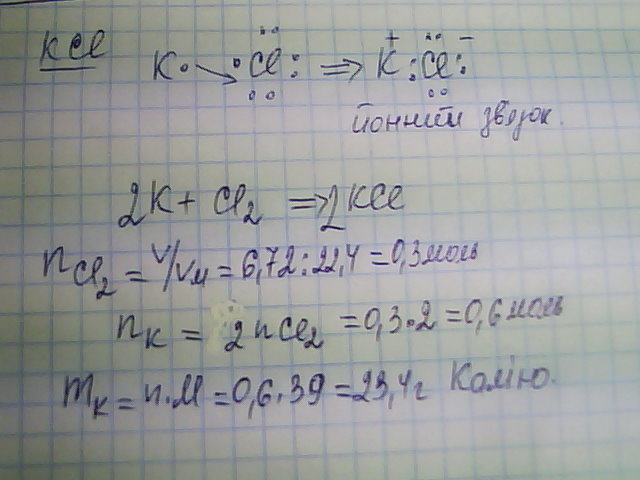 KCl
K· → ·Cl: ⇒ K⁺ :Cl:⁻
йонний зв'язок.
2K + Cl₂ ⇒ 2KCl
nCl₂ = V/Vм = 6,72 : 22,4 = 0,3 моль
nK = 2nCl₂ = 0,3 · 2 = 0,6 моль
mK = n·M = 0,6 · 39 = 23,4 г Калію.